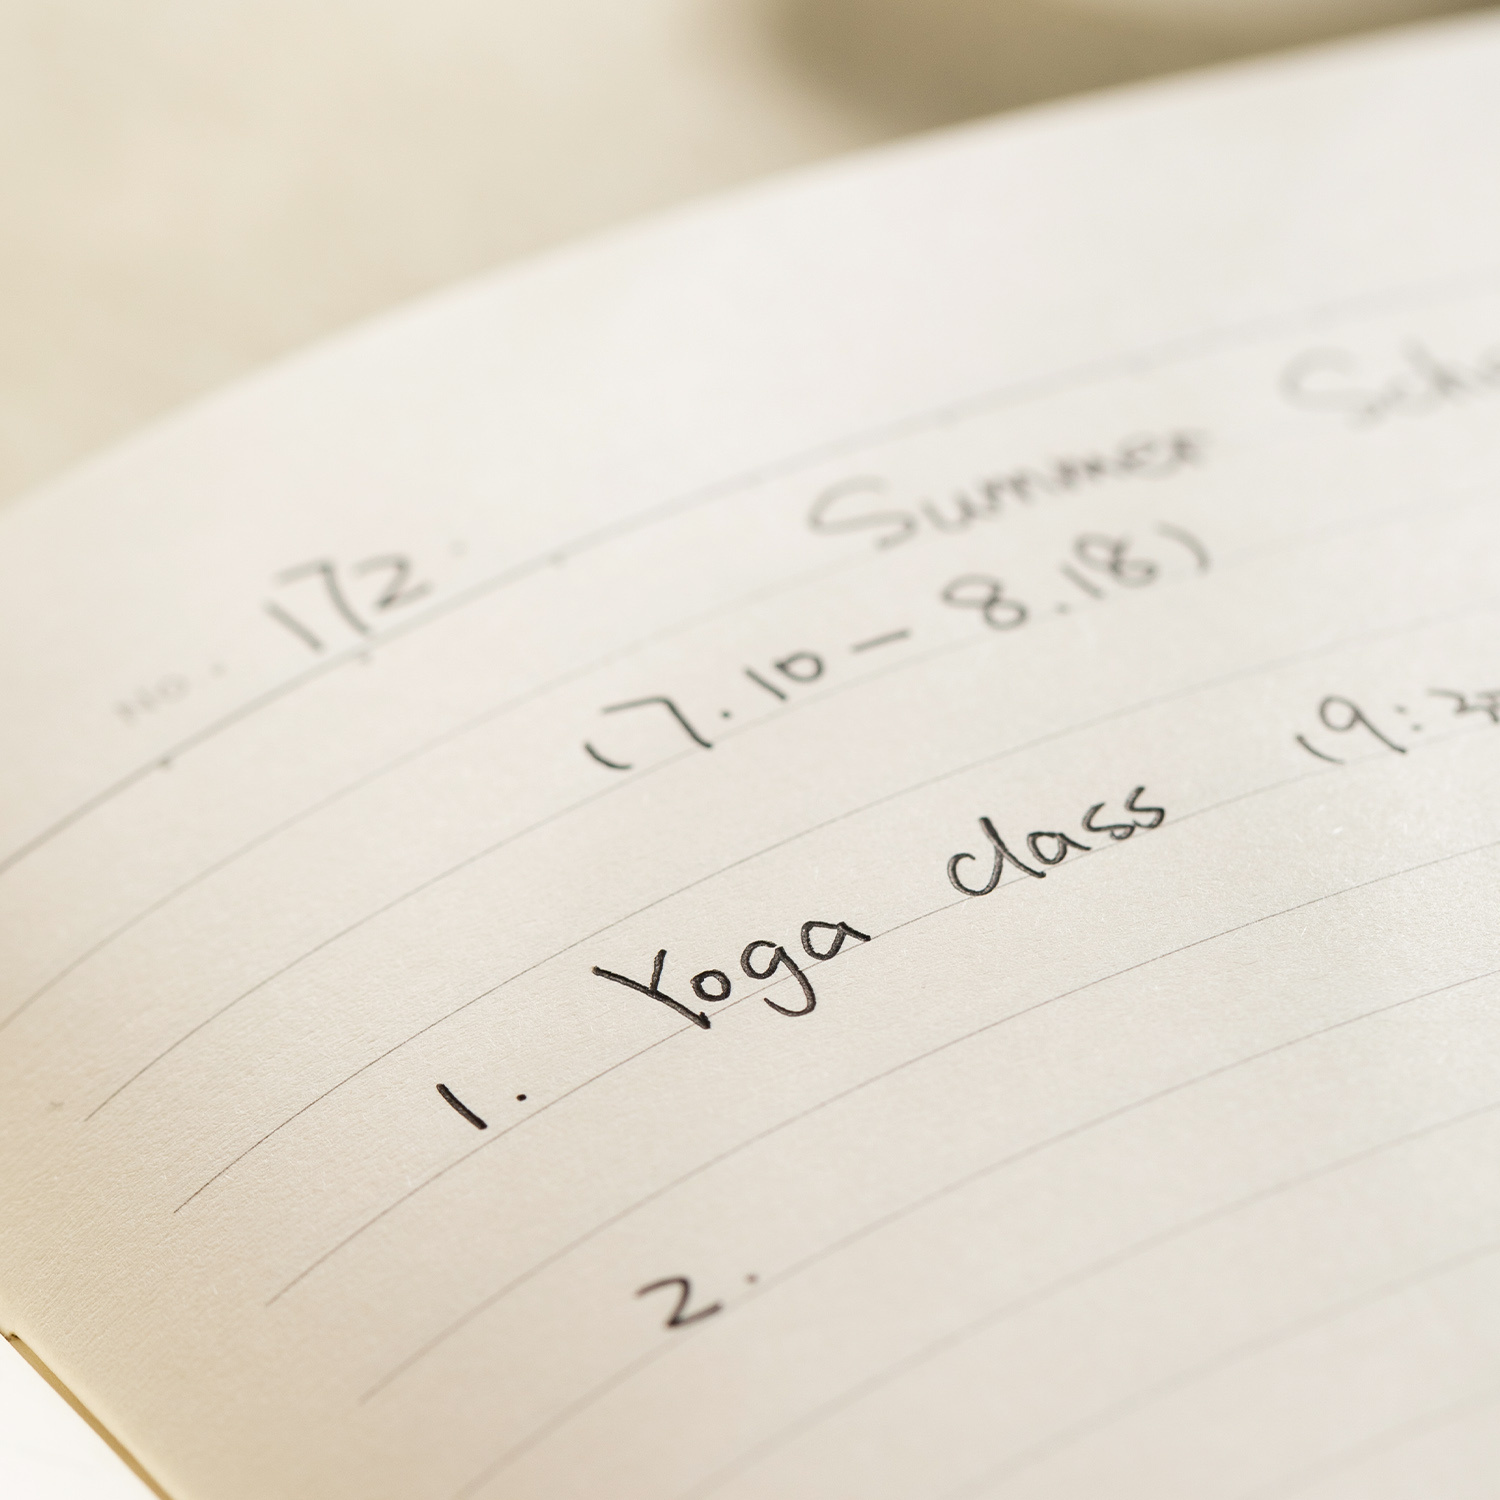 No. 172
Summer
(7.10 - 8.18)
1. Yoga class (9:30
2.